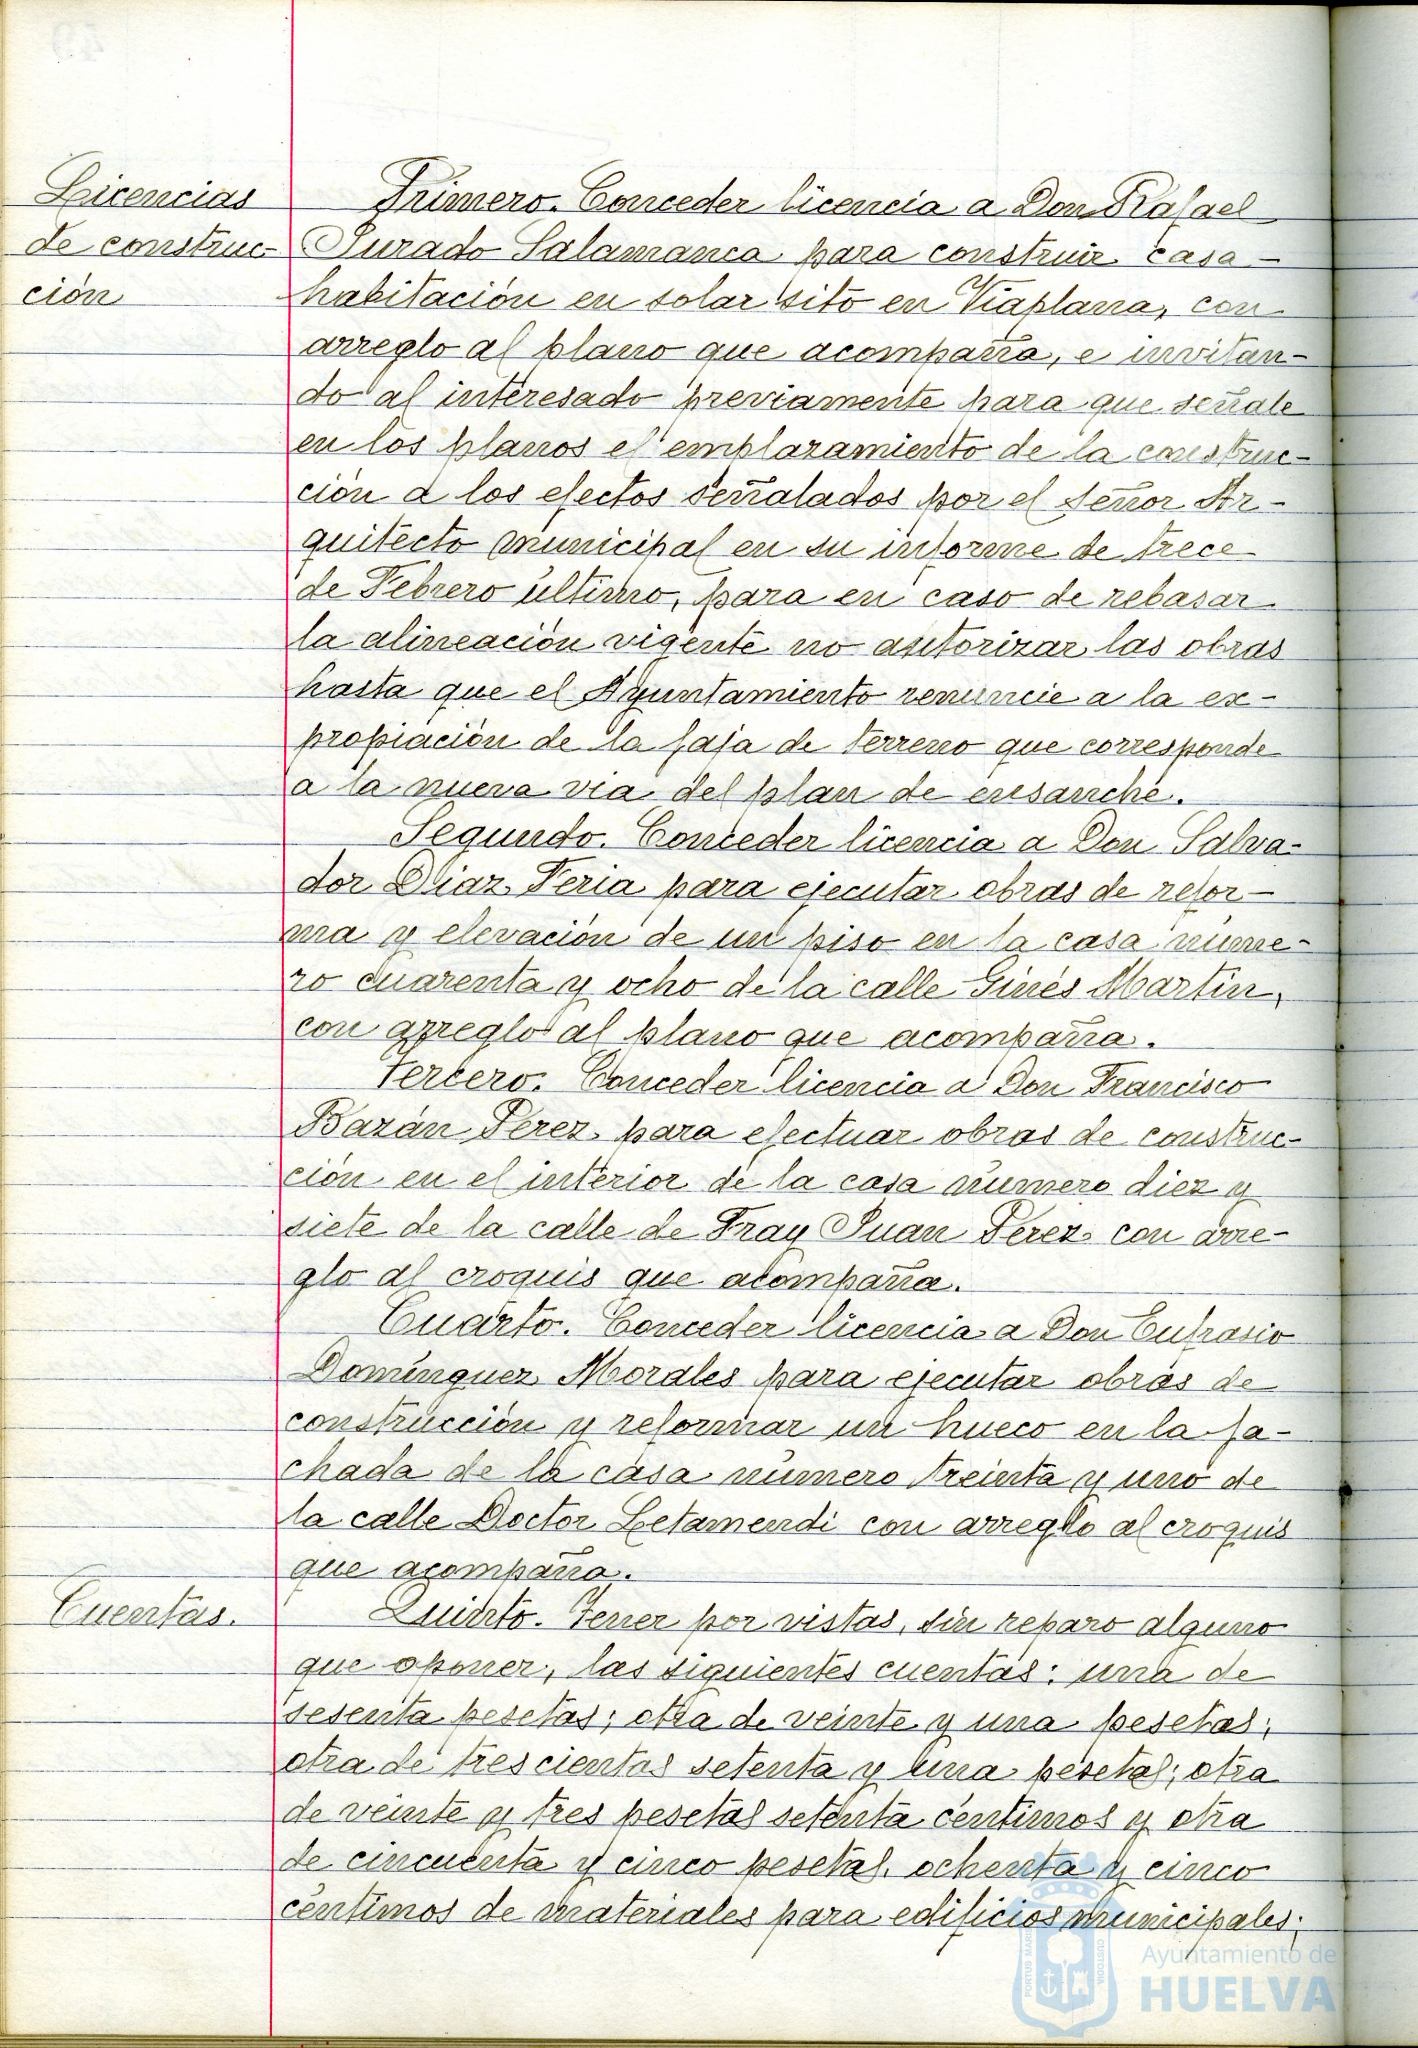 Licencias
de construc-
ción
Primero. Conceder licencia a Don Rafael
Jurado Salamanca para construir casa-
habitación en solar sito en Viaplana, con
arreglo al plano que acompaña, e invitan-
do al interesado previamente para que señale
en los planos el emplazamiento de la construc-
ción a los efectos señalados por el señor Ar-
quitecto municipal en su informe de trece
de Febrero último, para en caso de rebasar
la alineación vigente no autorizar las obras
hasta que el Ayuntamiento renuncie a la ex-
propiación de la faja de terreno que corresponde
a la nueva via del plan de ensanche.
Segundo. Conceder licencia a Don Salva-
dor Diaz Feria para ejecutar obras de refor-
ma y elevación de un piso en la casa núme-
ro cuarenta y ocho de la calle Ginés Martin,
con arreglo al plano que acompaña.
Tercero. Conceder licencia a Don Francisco
Bazán Perez para efectuar obras de construc-
ción en el interior de la casa número diez y
siete de la calle de Fray Juan Perez con arre-
glo al croquis que acompaña.
Cuarto. Conceder licencia a Don Eufrasio
Domínguez Morales para ejecutar obras de
construcción y reformar un hueco en la fa-
chada de la casa número treinta y uno de
la calle Doctor Letamendi con arreglo al croquis
que acompaña.
Cuentas.
Quinto. Tener por vistas, sin reparo alguno
que oponer, las siguientes cuentas: una de
sesenta pesetas; otra de veinte y una pesetas;
otra de trescientas setenta y una pesetas; otra
de veinte y tres pesetas setenta centimos y otra
de cincuenta y cinco pesetas ochenta y cinco
centimos de materiales para edificios municipales;
Ayuntamiento de
HUELVA